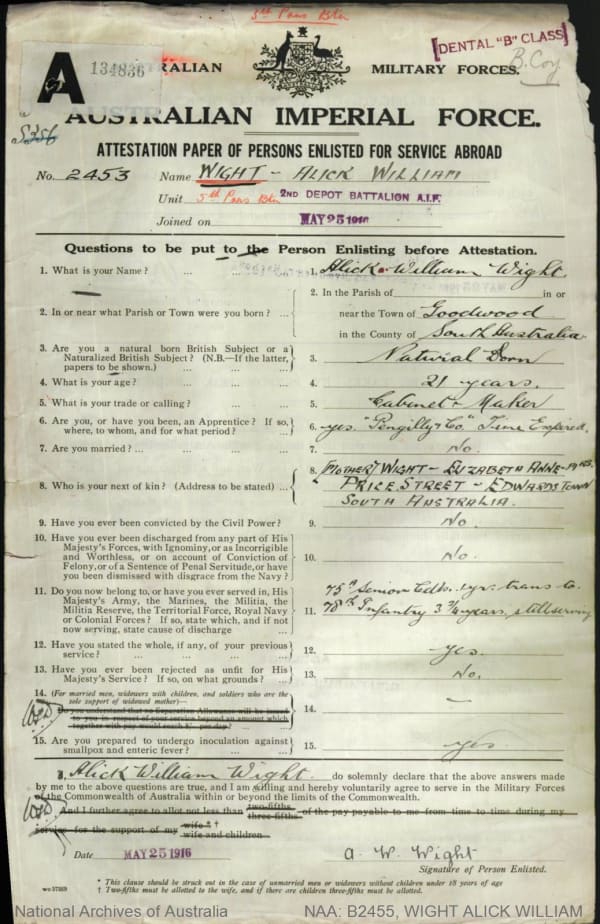 5th Pnrs Btn
DENTAL "B" CLASS
B. Coy
A
134836
RALIAN MILITARY FORCES.
AUSTRALIAN IMPERIAL FORCE.
ATTESTATION PAPER OF PERSONS ENLISTED FOR SERVICE ABROAD
No. 2453 Name WIGHT - ALICK WILLIAM
Unit 5th Pnrs Btn 2ND DEPOT BATTALION A.I.F.
Joined on MAY 25 1916
Questions to be put to the Person Enlisting before Attestation.
1. What is your Name? ... 1. Alick William Wight.
2. In or near what Parish or Town were you born? ... 2. In the Parish of in or
near the Town of Goodwood
in the County of South Australia
3. Are you a natural born British Subject or a
Naturalized British Subject? (N.B.—If the latter,
papers to be shown.) 3. Natural Born
4. What is your age? ... 4. 21 years.
5. What is your trade or calling? ... 5. Cabinet-Maker
6. Are you, or have you been, an Apprentice? If so,
where, to whom, and for what period? ... 6. yes. "Pengilly & Co." Time Expired.
7. Are you married? ... 7. No.
8. Who is your next of kin? (Address to be stated) ... 8. (MOTHER) WIGHT - ELIZABETH ANNE - MRS.
PRICE STREET - EDWARDSTOWN
SOUTH AUSTRALIA.
9. Have you ever been convicted by the Civil Power? 9. No.
10. Have you ever been discharged from any part of His
Majesty's Forces, with Ignominy, or as Incorrigible
and Worthless, or on account of Conviction of
Felony, or of a Sentence of Penal Servitude, or have
you been dismissed with disgrace from the Navy? 10. No.
11. Do you now belong to, or have you ever served in, His
Majesty's Army, the Marines, the Militia, the
Militia Reserve, the Territorial Force, Royal Navy
or Colonial Forces? If so, state which, and if not
now serving, state cause of discharge ... 11. 75th Senior Cdts. 1 yr. trans to.
78th Infantry 3 years, still serving
12. Have you stated the whole, if any, of your previous
service? ... 12. Yes.
13. Have you ever been rejected as unfit for His
Majesty's Service? If so, on what grounds? ... 13. No.
14. (For married men, widowers with children, and soldiers who are the
sole support of widowed mother)—
Do you understand that no Separation Allowance will be issued
to you in respect of your service beyond an amount which
together with pay would reach 8/- per day? 14. –
15. Are you prepared to undergo inoculation against
smallpox and enteric fever? ... 15. yes
I, Alick William Wight. do solemnly declare that the above answers made
by me to the above questions are true, and I am willing and hereby voluntarily agree to serve in the Military Forces
of the Commonwealth of Australia within or beyond the limits of the Commonwealth.
And I further agree to allot not less than two-fifths three-fifths of the pay payable to me from time to time during my
service for the support of my wife * † wife and children
Date MAY 25 1916 A. W. Wight
Signature of Person Enlisted.
* This clause should be struck out in the case of unmarried men or widowers without children under 18 years of age
† Two-fifths must be allotted to the wife, and if there are children three-fifths must be allotted.
National Archives of Australia NAA: B2455, WIGHT ALICK WILLIAM